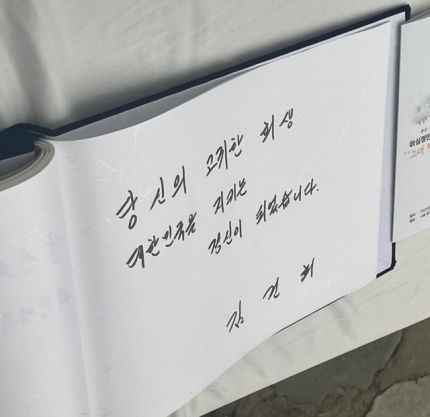 당신의 고귀한 희생
대한민국을 지키는
정신이 되었습니다.
김건희